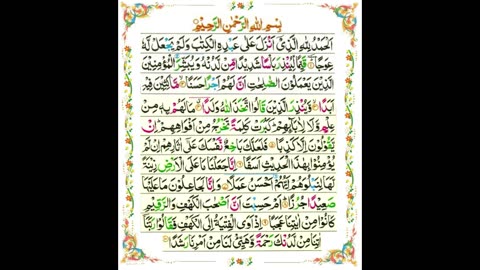 بِسْمِ اللهِ الرَّحْمٰنِ الرَّحِيْمِ
اَلْحَمْدُ لِلّٰهِ الَّذِیْۤ اَنْزَلَ عَلٰی عَبْدِهِ الْكِتٰبَ وَلَمْ یَجْعَلْ لَّهٗ
عِوَجًا ۟ قَیِّمًا لِّیُنْذِرَ بَاْسًا شَدِیْدًا مِّنْ لَّدُنْهُ وَیُبَشِّرَ الْمُؤْمِنِیْنَ
الَّذِیْنَ یَعْمَلُوْنَ الصّٰلِحٰتِ اَنَّ لَهُمْ اَجْرًا حَسَنًا ۟ مَّاكِثِیْنَ فِیْهِ
اَبَدًا ۟ وَّیُنْذِرَ الَّذِیْنَ قَالُوا اتَّخَذَ اللهُ وَلَدًا ۟ مَا لَهُمْ بِهٖ مِنْ
عِلْمٍ وَّلَا لِاٰبَآىِٕهِمْ كَبُرَتْ كَلِمَةً تَخْرُجُ مِنْ اَفْوَاهِهِمْ اِنْ
یَّقُوْلُوْنَ اِلَّا كَذِبًا ۟ فَلَعَلَّكَ بَاخِعٌ نَّفْسَكَ عَلٰۤی اٰثَارِهِمْ اِنْ لَّمْ
یُؤْمِنُوْا بِهٰذَا الْحَدِیْثِ اَسَفًا ۟ اِنَّا جَعَلْنَا مَا عَلَی الْاَرْضِ زِیْنَةً
لَّهَا لِنَبْلُوَهُمْ اَیُّهُمْ اَحْسَنُ عَمَلًا ۟ وَاِنَّا لَجٰعِلُوْنَ مَا عَلَیْهَا
صَعِیْدًا جُرُزًا ۟ اَمْ حَسِبْتَ اَنَّ اَصْحٰبَ الْكَهْفِ وَالرَّقِیْمِ
كَانُوْا مِنْ اٰیٰتِنَا عَجَبًا ۟ اِذْ اَوَی الْفِتْیَةُ اِلَی الْكَهْفِ فَقَالُوْا رَبَّنَاۤ
اٰتِنَا مِنْ لَّدُنْكَ رَحْمَةً وَّهَیِّئْ لَنَا مِنْ اَمْرِنَا رَشَدًا ۟